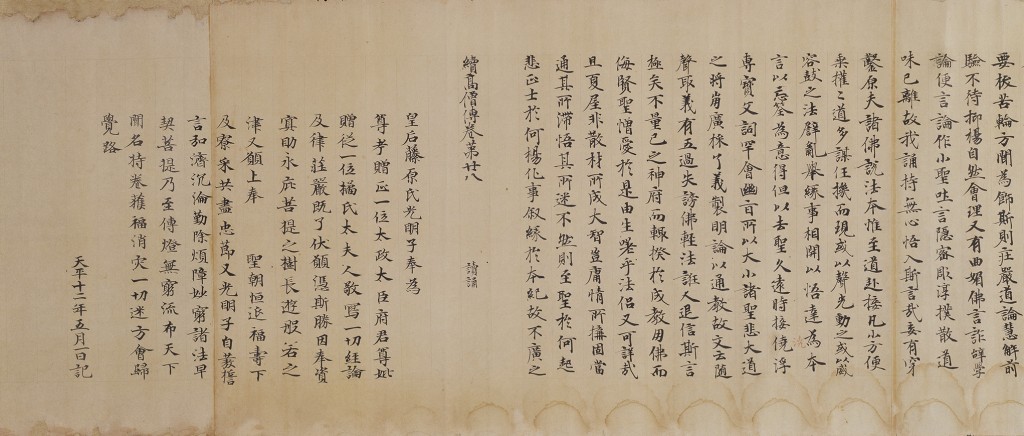 要板苦輪方聞為飾斯則莊嚴道論慧解前
驗不待抑揚自然會理又有曲媚佛言詐辯學
論便言論作小聖吐言隱密彫淳樸散道
味已離故我誦持無心悟入斯言哉有穿
鑿原夫諸佛説法本惟至道赴接凡小方便
乘權之道多謀任機而現或以聲光動之或以威
容鼓之法辟亂舉緣事相開以悟達為本
言以忘筌為意得但以去聖久遠時接澆浮
專寶文詞罕會幽旨所以大小諸聖悲大道
之將崩廣採了義製明論以通教故文云随
聲取義有五過失謗佛輕法誑人退信斯言
極矣不量己之神府而輙揆於成教毋佛而
侮賢聖憎愛於是由生嗟乎法侶又可詳哉
且夏屋非散材所成大智豈庸情所擕固當
通其所滞悟其所迷不然則至聖於何起
悲正士於何揚化事叙緣於本紀故不廣之
續高僧傳卷第廿八　讀誦
皇后藤原氏光明子奉為
尊考贈正一位太政太臣府君尊妣
贈從一位橘氏太夫人敬寫一切經論
及律莊嚴既了伏願憑斯勝因奉資
冥助永庇菩提之樹長遊般若之
津又願上奉　聖朝恒延福壽下
及寮采共盡忠節又光明子自發誓
言弘濟沉淪勤除煩障妙窮諸法早
契菩提乃至傳燈無窮流布天下
聞名持卷獲福消灾一切迷方會歸
覺路
天平十二年五月一日記